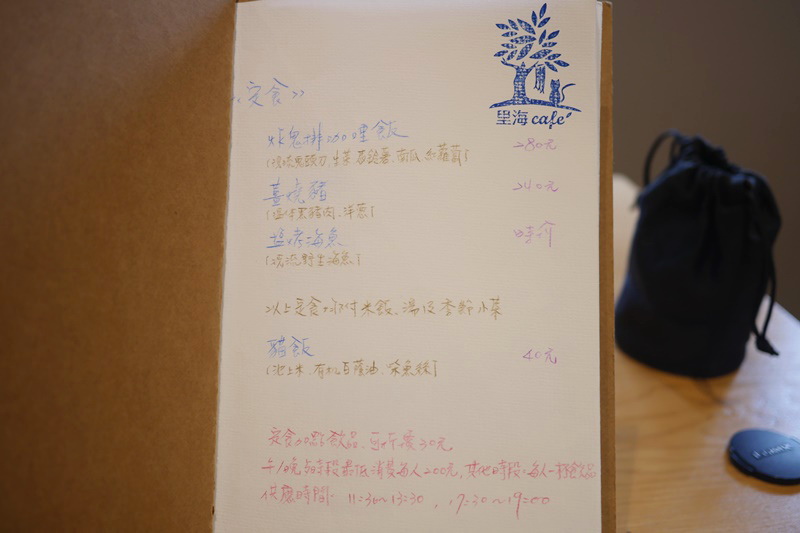 望海 cafe'
《定食》
炸鬼排咖哩飯 280元
薑燒豬 240元
(溫体黑豬肉、洋蔥)
塩烤海魚 時价
(現流野生海魚)
以上定食均附米飯、湯及季節小菜
豬飯 40元
(池上米、有机白蔭油、柴魚絲)
定食加點飲品、可折價30元。
午/晚餐時段最低消費每人200元，其他時段，每人一杯飲品
供應時間: 11:30~13:30 , 17:30~19:00